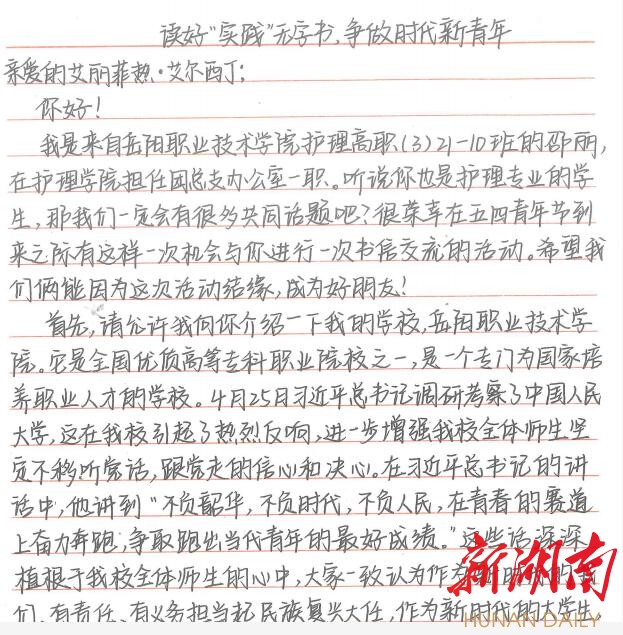 读好“实践”无字书,争做时代新青年
亲爱的艾丽菲热·艾尔西丁:
你好!
我是来自岳阳职业技术学院护理高职(3)21-10班的邵丽,
在护理学院担任团总支办公室一职。听说你也是护理专业的学
生,那我们一定会有很多共同话题吧?很荣幸在五四青年节到
来之际有这样一次机会与你进行一次书信交流的活动。希望我
们俩能因为这次活动结缘,成为好朋友!
首先,请允许我向你介绍一下我的学校,岳阳职业技术学
院。它是全国优质高等专科职业院校之一,是一个专门为国家培
养职业人才的学校。4月25日习近平总书记调研考察了中国人民
大学,这在我校引起了热烈反响,进一步增强我校全体师生坚
定不移听党话,跟党走的信心和决心。在习近平总书记的讲
话中,他讲到“不负韶华,不负时代,不负人民,在青春的赛道
上奋力奔跑,争取跑出当代青年的最好成绩。”这些话深深
植根于我校全体师生的心中,大家一致认为作为新时代的我
们,有责任、有义务担当起民族复兴大任,作为新时代的大学生
新湖南
HUNAN DAILY